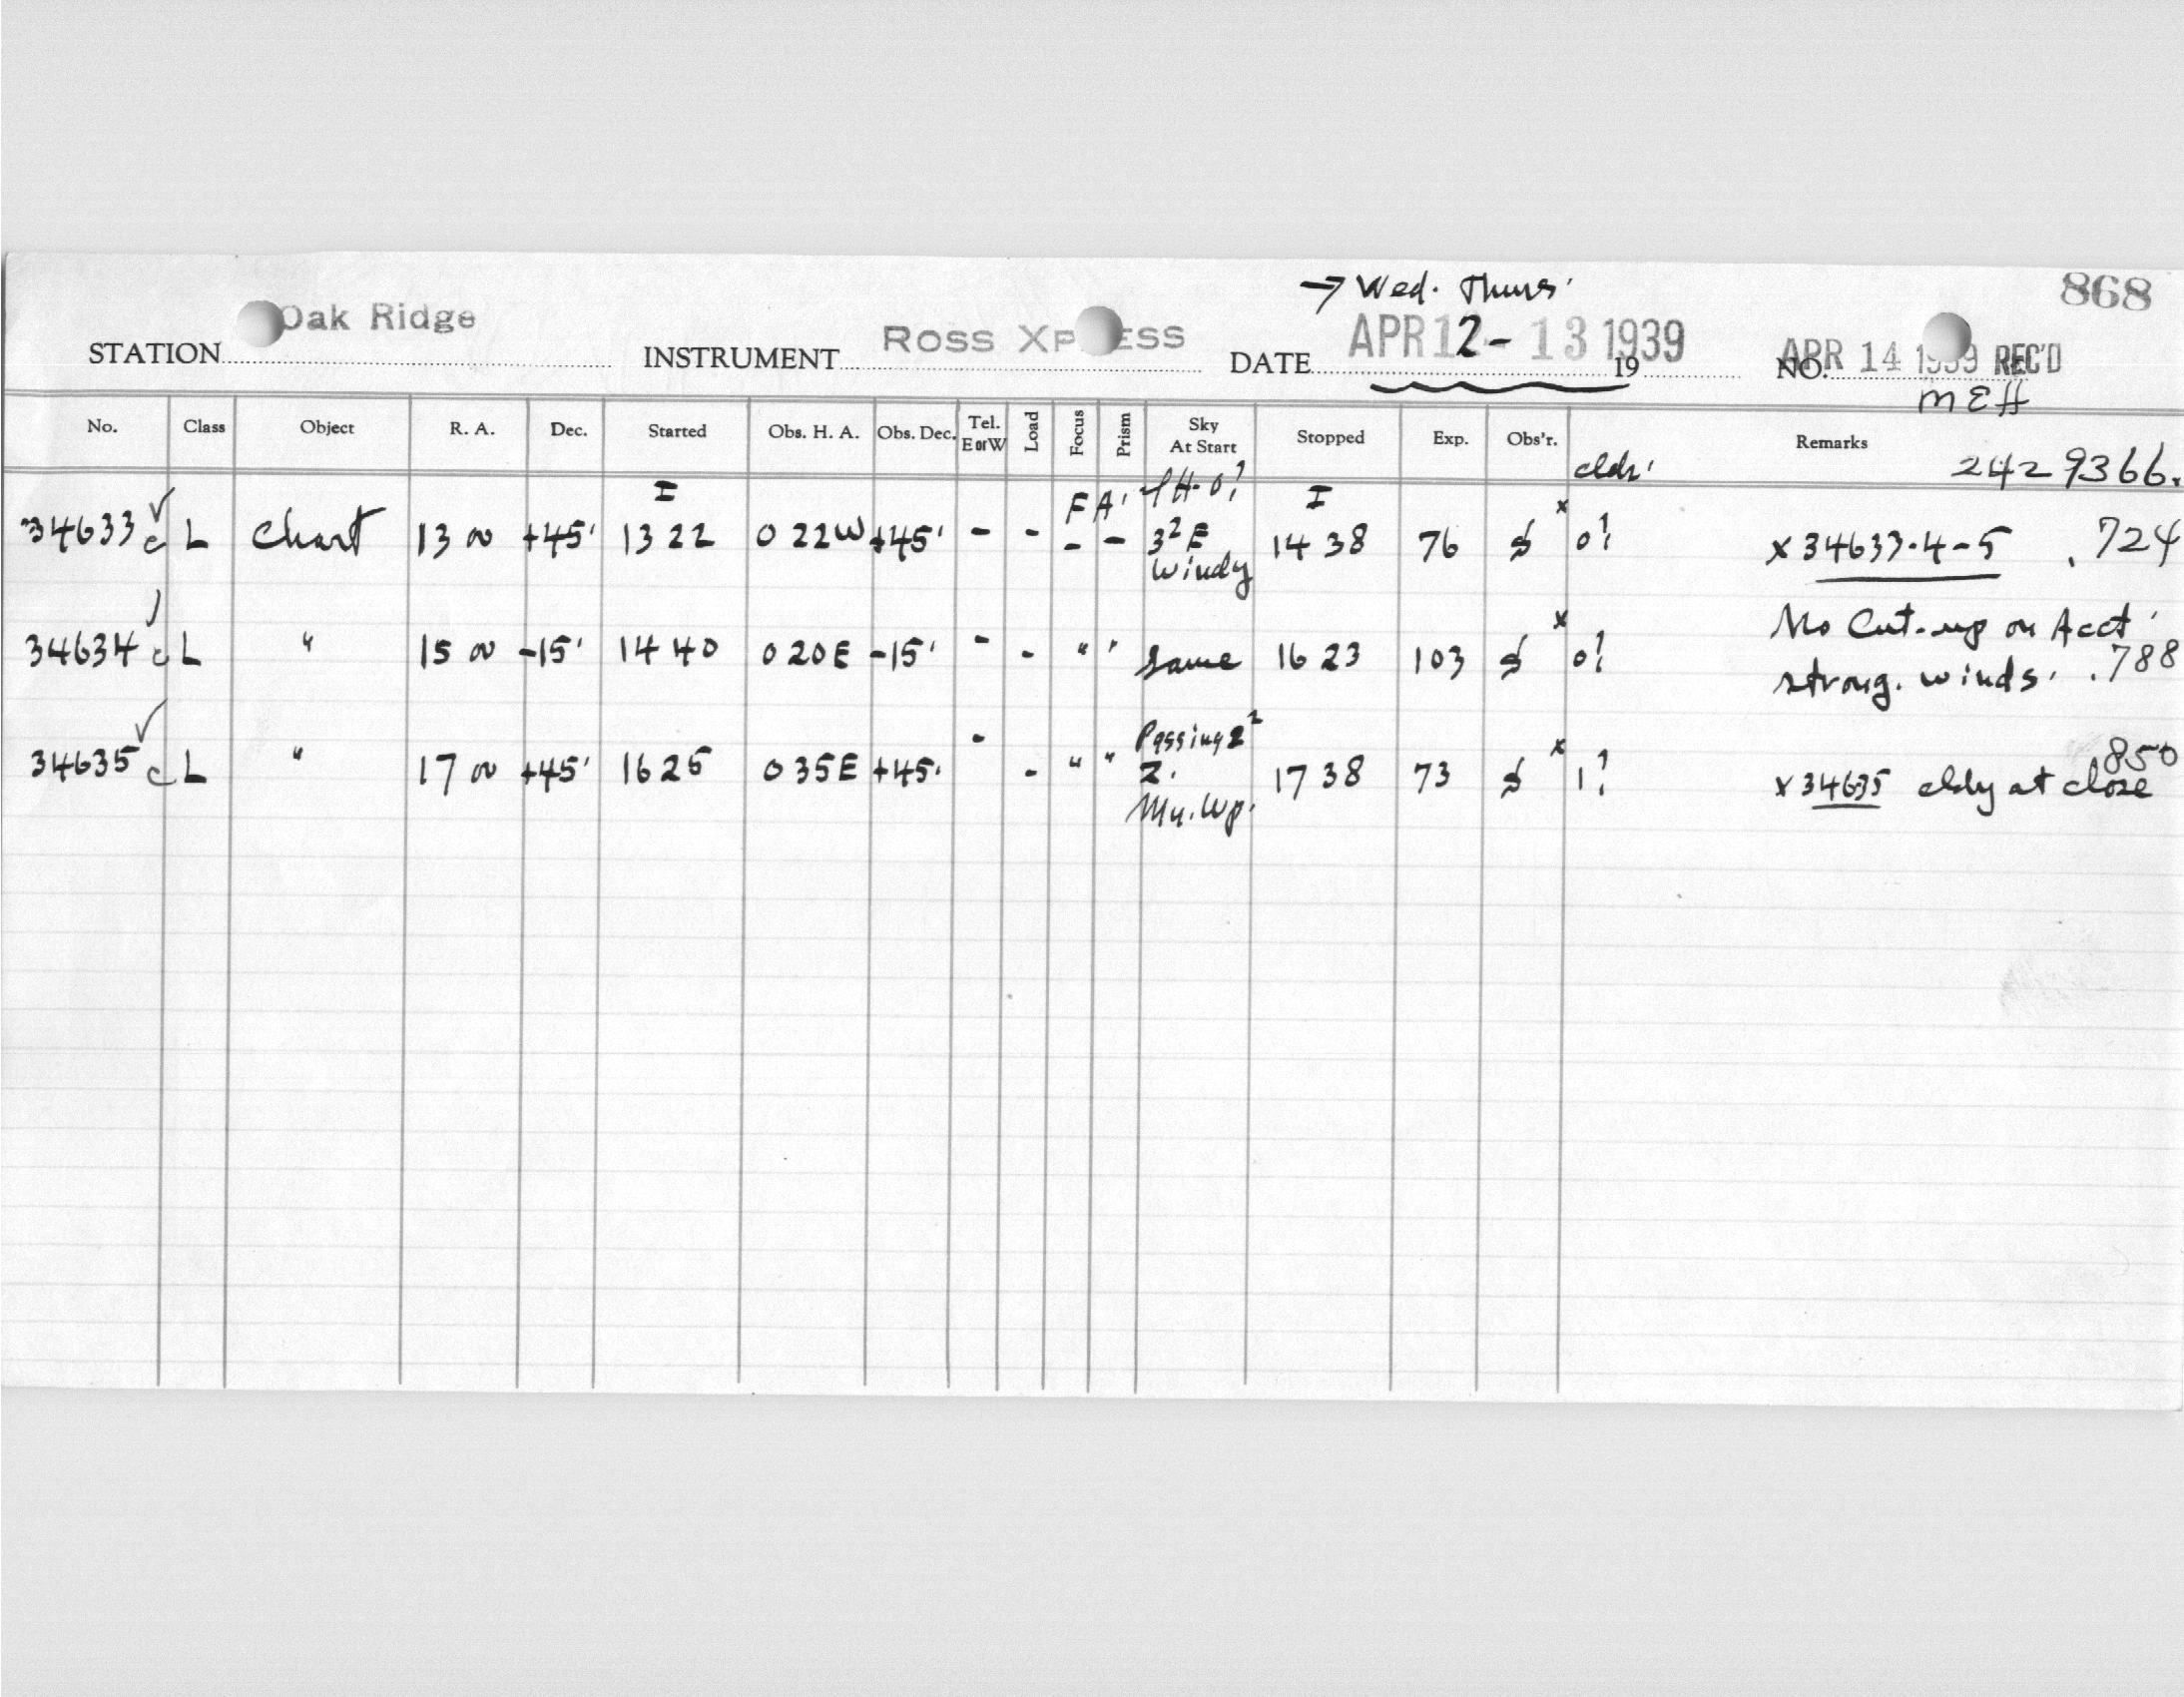 → Wed. Thurs.
868
STATION Oak Ridge INSTRUMENT ROSS XPRESS DATE APR 12 - 13 1939 19 NO. APR 14 1939 REC'D
MEH
No. Class Object R. A. Dec. Started Obs. H. A. Obs. Dec. Tel. E or W Load Focus Prism Sky At Start Stopped Exp. Obs'r. Remarks
2429366.
I F A' I
34633 ✓ c L Chart 13 00 +45' 13 22 0 22W +45' - - - - 3²E Windy 14 38 76 x 0? x 34633-4-5 .724
34634 c L " 15 00 -15' 14 40 0 20E -15' - - " " Same 16 23 103 x 0? No Cut-up on Acct. strong winds. .788
34635 ✓ c L " 17 00 +45' 16 25 0 35E +45' - - " " Passing 2² 2. 17 38 73 x 1? x 34635 cldy at close 850